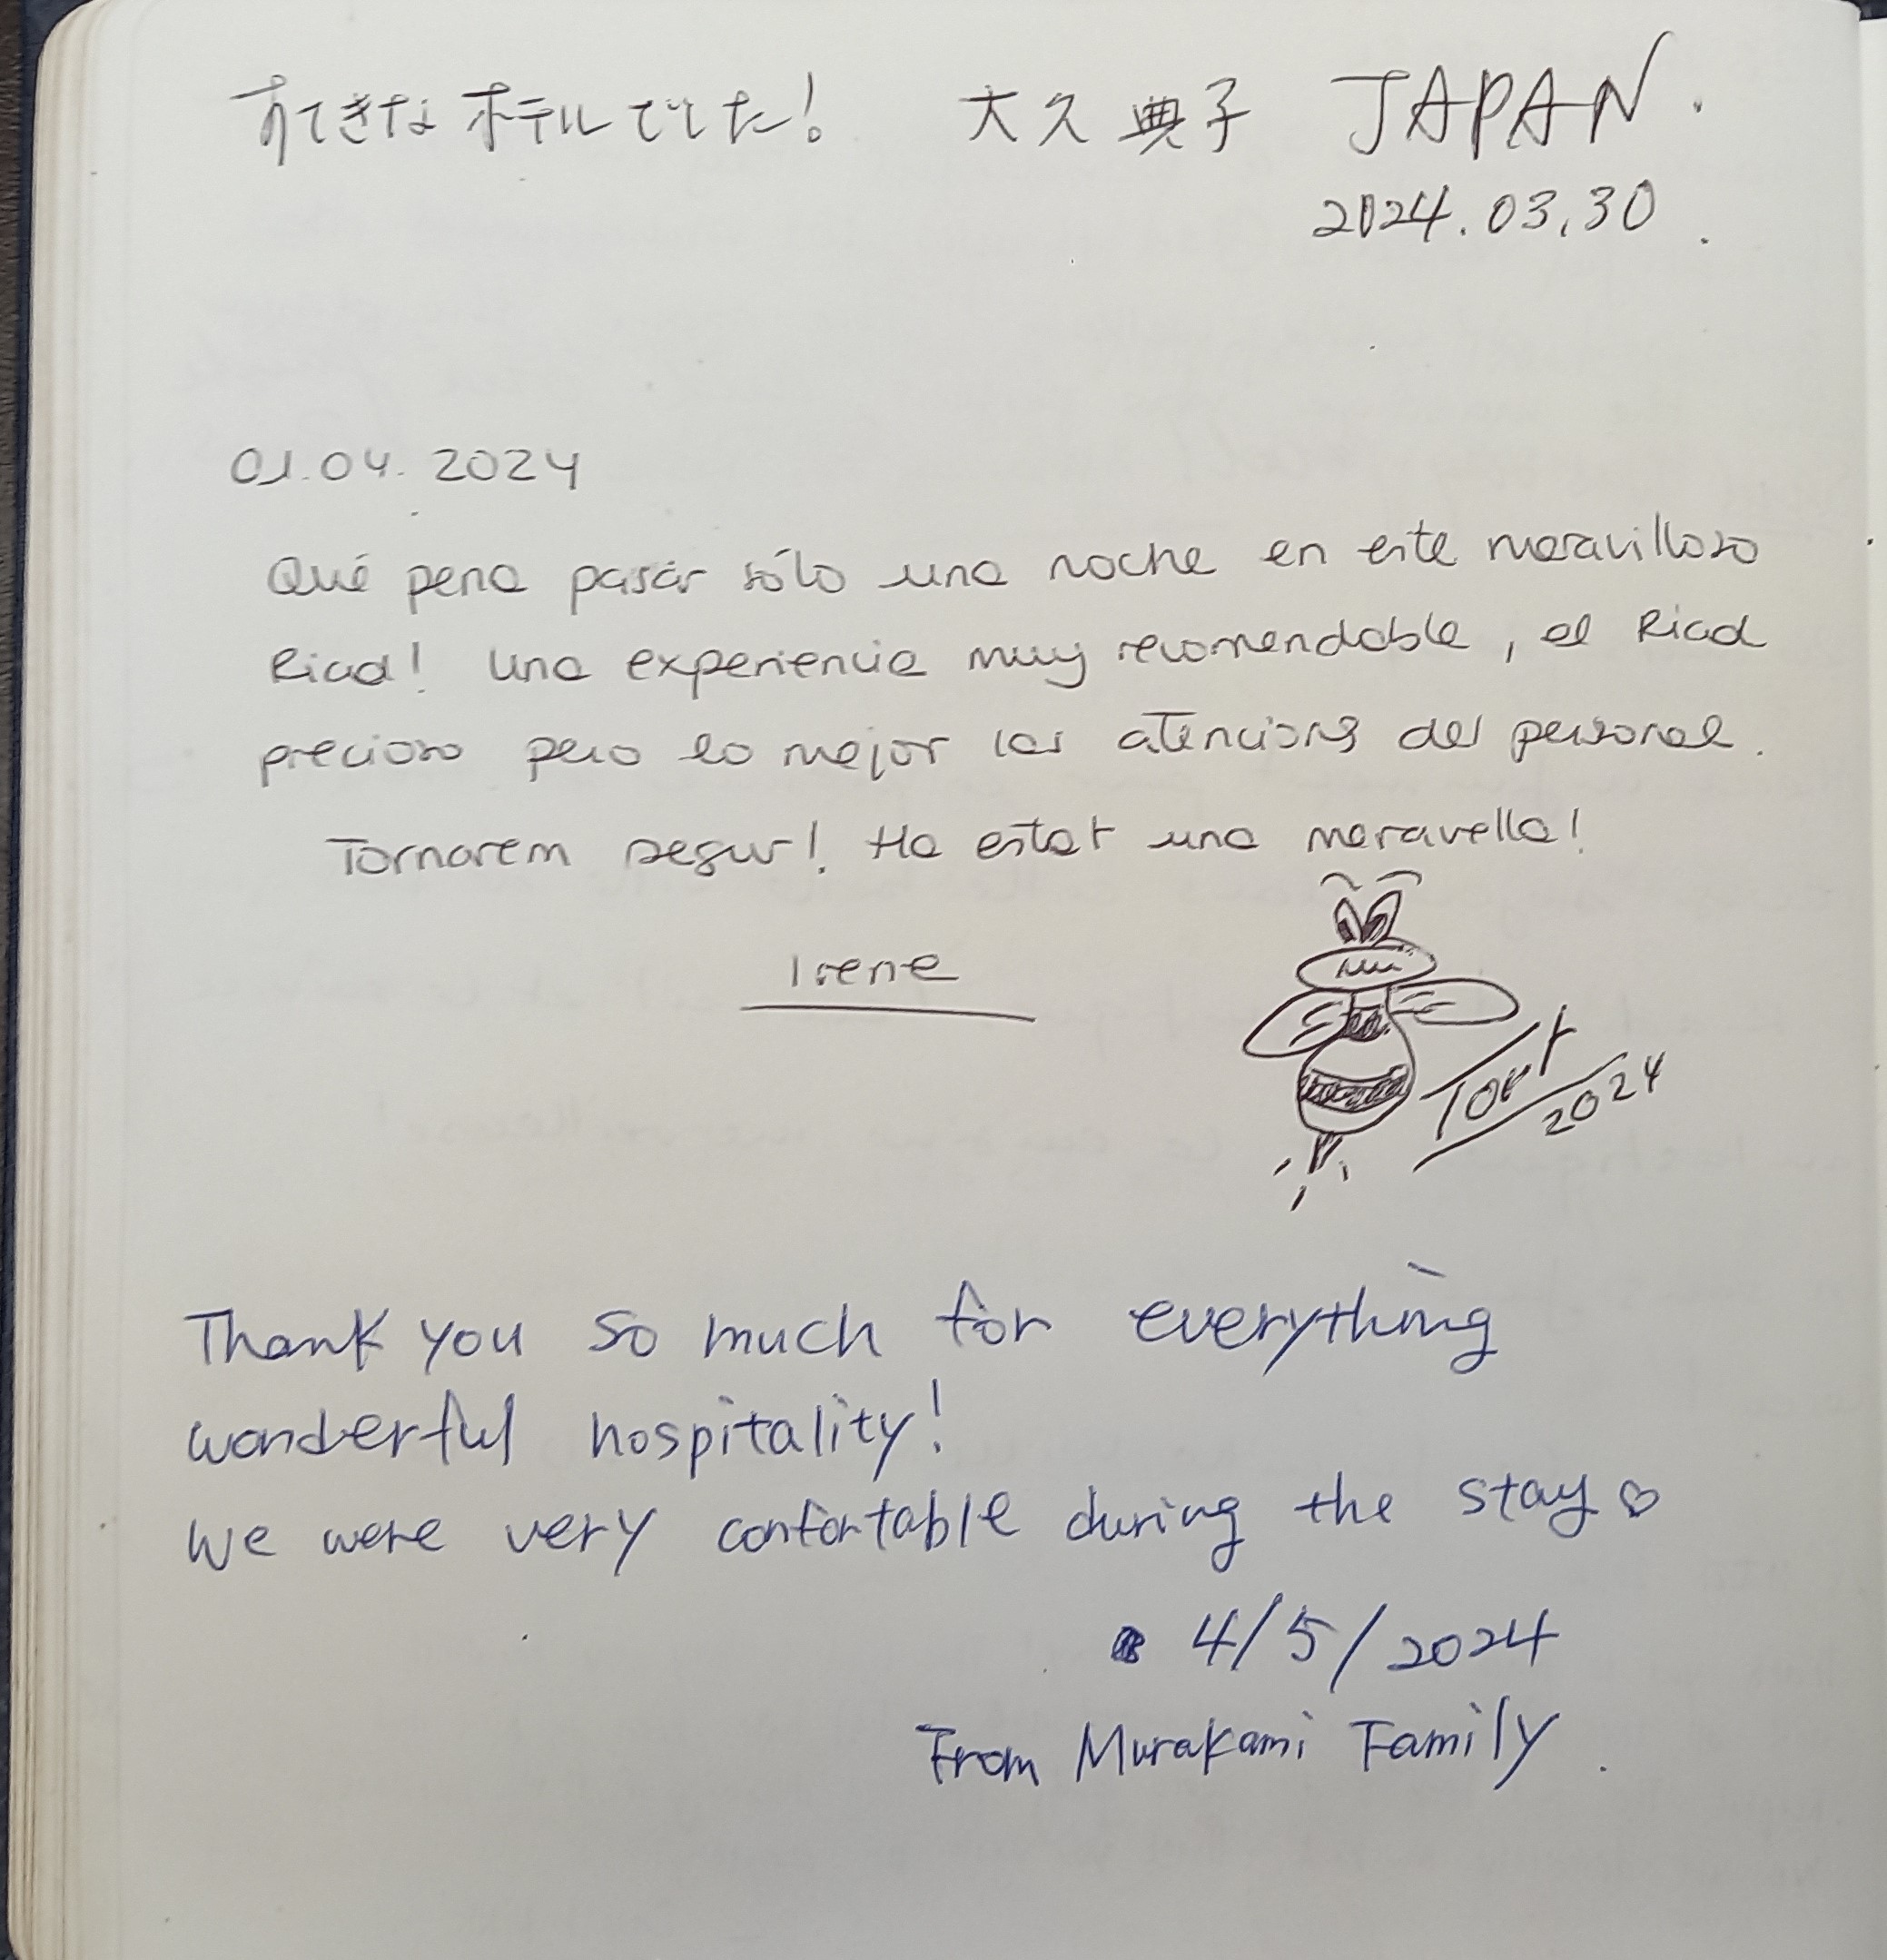 すてきなホテルでした! 大久典子 JAPAN.
2024.03.30.
01.04.2024
Qué pena pasar sólo una noche en este maravilloso
Riad! Una experiencia muy recomendable, el Riad
precioso pero lo mejor las atencions del personal.
Tornarem segur! Ha estat una meravella!
Irene
2024
Thank you so much for everything
wonderful hospitality!
We were very confortable during the stay ♡
4/5/2024
From Murakami Family.